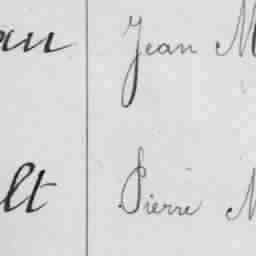 au Jean M
lt Pierre M